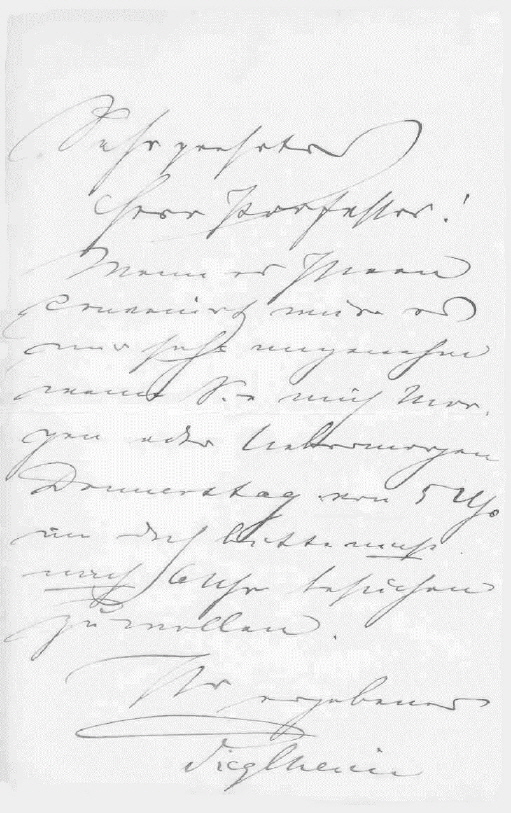 Sehr geehrter
Herr Professor!
Wenn es Ihnen
convenirt wäre es
mir sehr angenehm
wenn Sie mich Mor-
gen oder Uebermorgen
Donnerstag von 5 Uhr
an doch bitte nicht
nach 6 Uhr besuchen
zu wollen.
Ihr ergebener
Piglhein